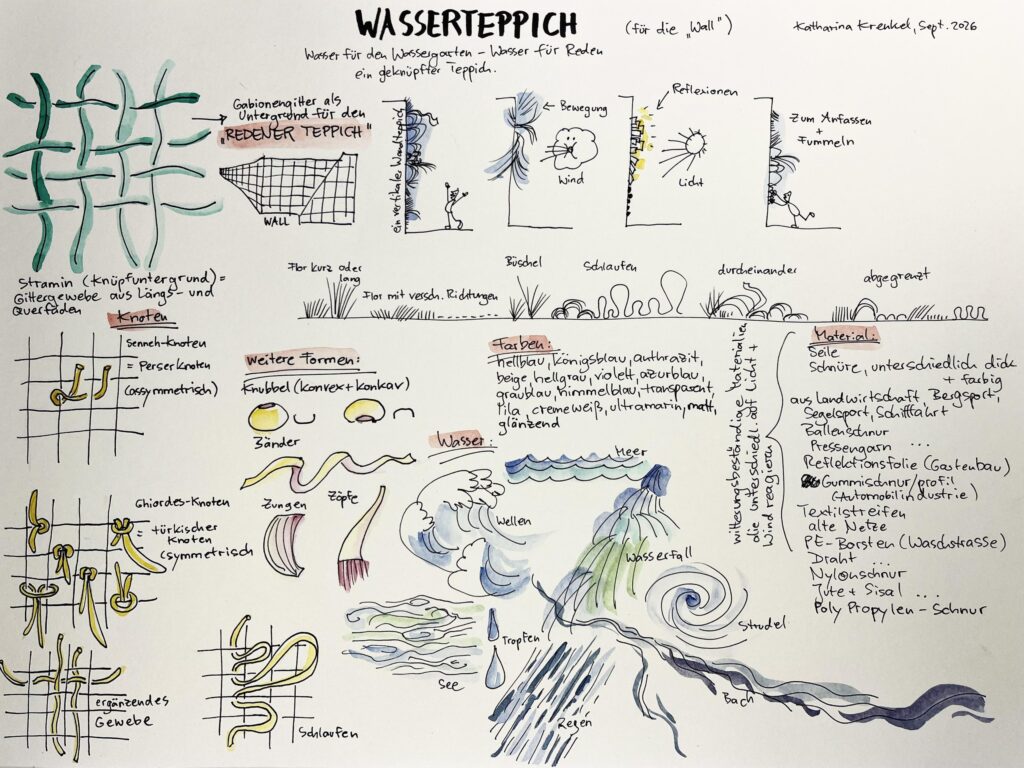 WASSERTEPPICH
(für die „Wall")
Katharina Krenkel, Sept. 2026
Wasser für den Wassergarten – Wasser für Reden
ein geknüpfter Teppich.
Gabionengitter als
Untergrund für den
„REDENER TEPPICH"
WALL
ein vertikaler Wandteppich
Bewegung
Wind
Reflexionen
Licht
Zum Anfassen
+
Fummeln
Stramin (Knüpfuntergrund) =
Gittergewebe aus Längs- und
Querfäden
Flor kurz oder
lang
Flor mit versch. Richtungen
Büschel
Schlaufen
durcheinander
abgegrenzt
Knoten
Senneh-Knoten
= Perserknoten
(assymmetrisch)
Ghiordes-Knoten
= türkischer
Knoten
(symmetrisch
ergänzendes
Gewebe
Schlaufen
weitere Formen:
Knubbel (konvex + konkav)
Bänder
Zungen
Zöpfe
Farben:
hellblau, königsblau, anthrazit,
beige, hellgrau, violett, azurblau,
graublau, himmelblau, transparent,
lila, cremeweiß, ultramarin, matt,
glänzend
Wasser:
Meer
Wellen
Wasserfall
Strudel
Tropfen
See
Regen
Bach
wittesungsbeständige Materialien
die unterschiedl. auf Licht +
Wind reagieren
Material:
Seile
Schnüre, unterschiedlich dick
+ farbig
aus Landwirtschaft, Bergsport,
Segelsport, Schifffahrt
Ballenschnur
Pressengarn ...
Reflektionsfolie (Gartenbau)
Gummischnur/profil
(Automobilindustrie)
Textilstreifen
alte Netze
PE-Borsten (Waschstrasse)
Draht ...
Nylonschnur
Jute + Sisal ...
Poly Propylen – Schnur